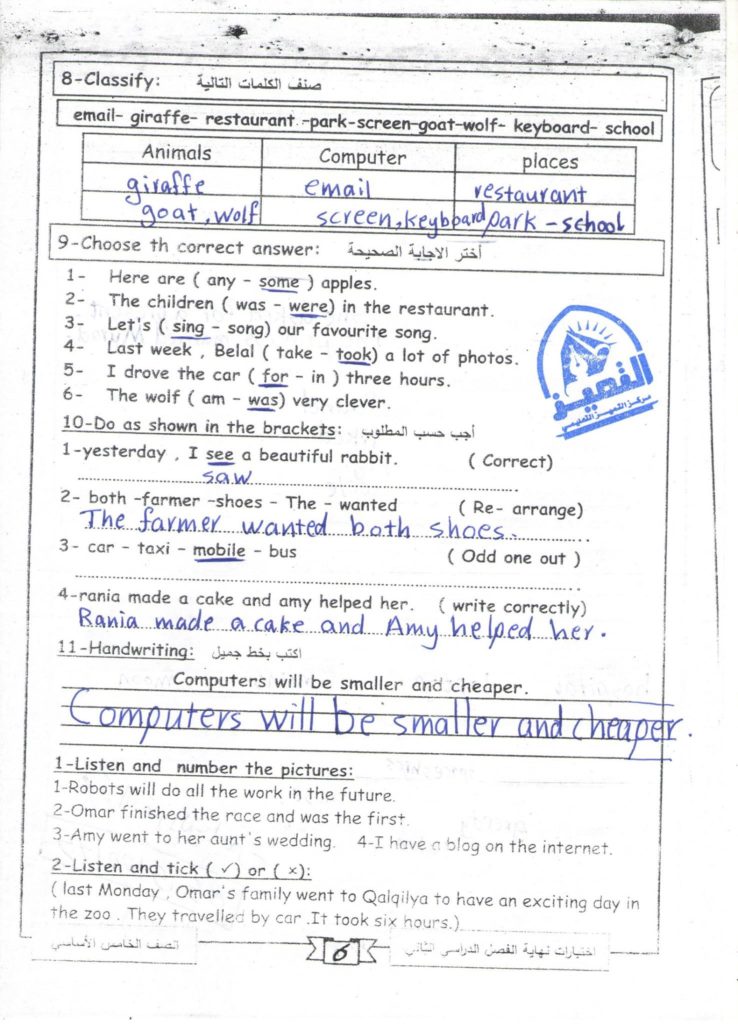 8-Classify: صنف الكلمات التالية
email- giraffe- restaurant -park-screen-goat-wolf- keyboard- school
Animals Computer places
giraffe email restaurant
goat, wolf screen, keyboard park - school
9-Choose th correct answer: أختر الاجابة الصحيحة
1- Here are ( any - some ) apples.
2- The children ( was - were) in the restaurant.
3- Let's ( sing - song) our favourite song.
4- Last week , Belal ( take - took) a lot of photos.
5- I drove the car ( for - in ) three hours.
6- The wolf ( am - was) very clever.
التميز
مركز التميز التعليمي
10-Do as shown in the brackets: أجب حسب المطلوب
1-yesterday , I see a beautiful rabbit. ( Correct)
saw
2- both -farmer -shoes - The - wanted ( Re- arrange)
The farmer wanted both shoes.
3- car - taxi - mobile - bus ( Odd one out )
4-rania made a cake and amy helped her. ( write correctly)
Rania made a cake and Amy helped her.
11-Handwriting: اكتب بخط جميل
Computers will be smaller and cheaper.
Computers will be smaller and cheaper.
1-Listen and number the pictures:
1-Robots will do all the work in the future.
2-Omar finished the race and was the first.
3-Amy went to her aunt's wedding. 4-I have a blog on the internet.
2-Listen and tick ( ✓) or ( ×):
( last Monday , Omar's family went to Qalqilya to have an exciting day in
the zoo . They travelled by car .It took six hours.)
اختبارات نهاية الفصل الدراسي الثاني 6 الصف الخامس الأساسي